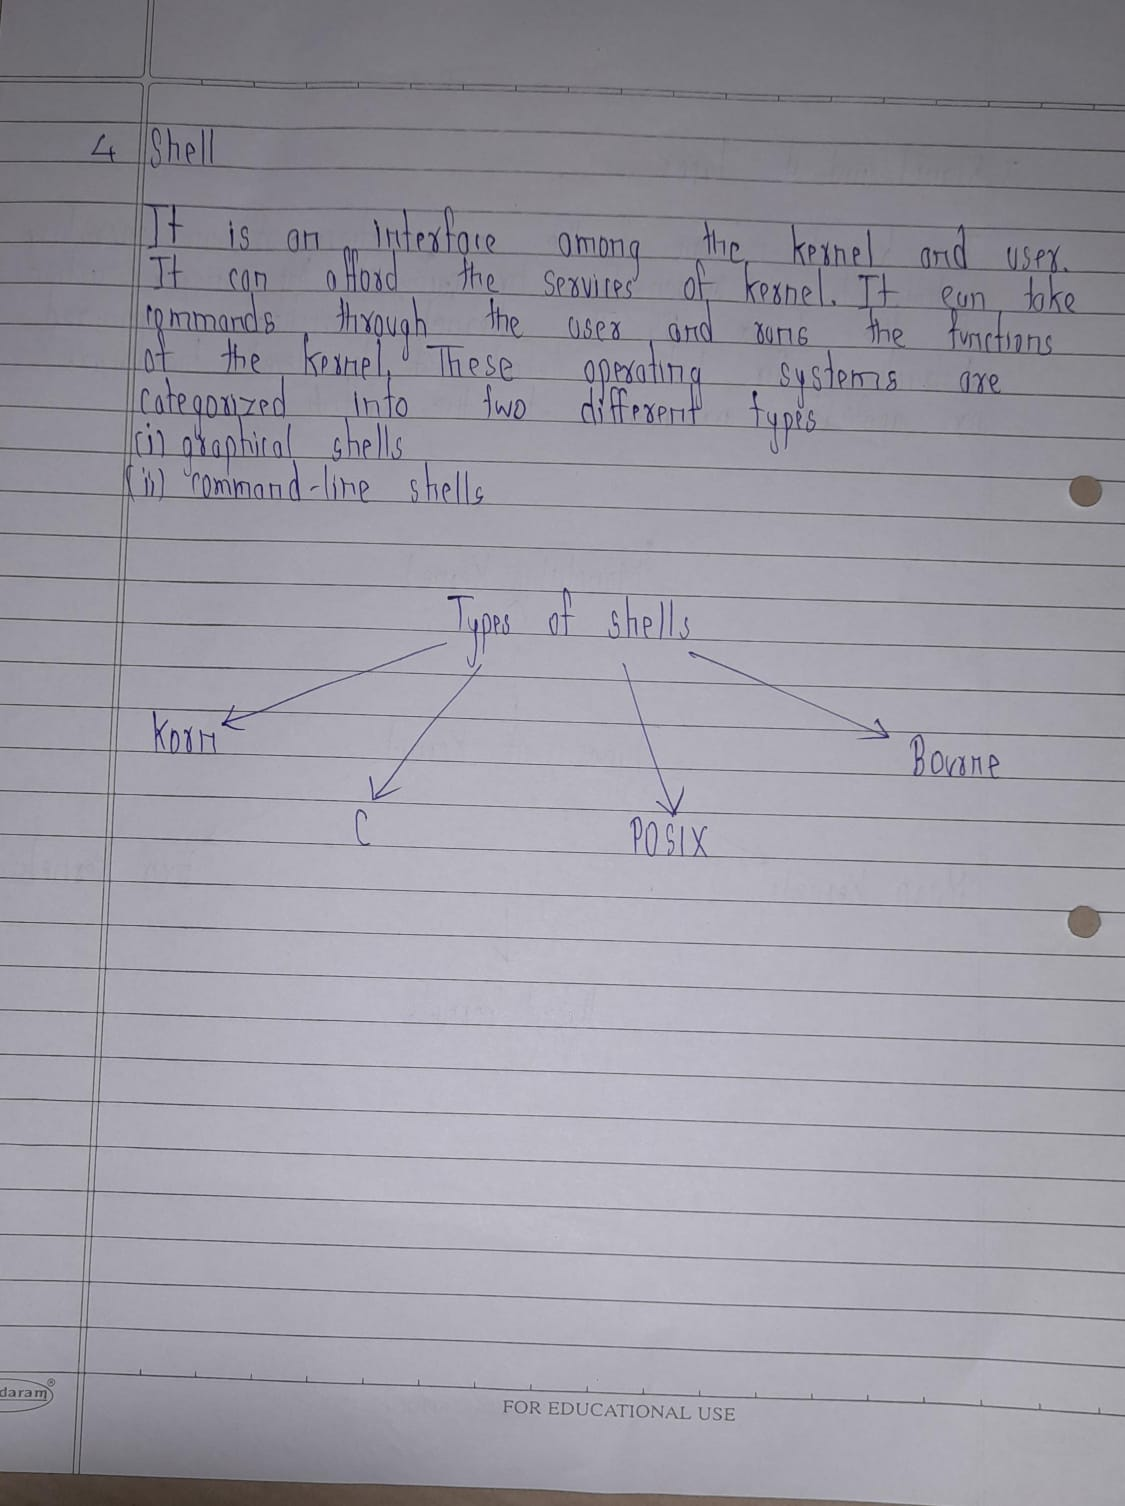 4 Shell
It is an interface among the kernel and user.
It can afford the services of kernel. It can take
commands through the user and runs the functions
of the kernel. These operating systems are
categorized into two different types
(i) graphical shells
(ii) command-line shells
Types of shells
Korn
Bourne
C
POSIX
daram®
FOR EDUCATIONAL USE